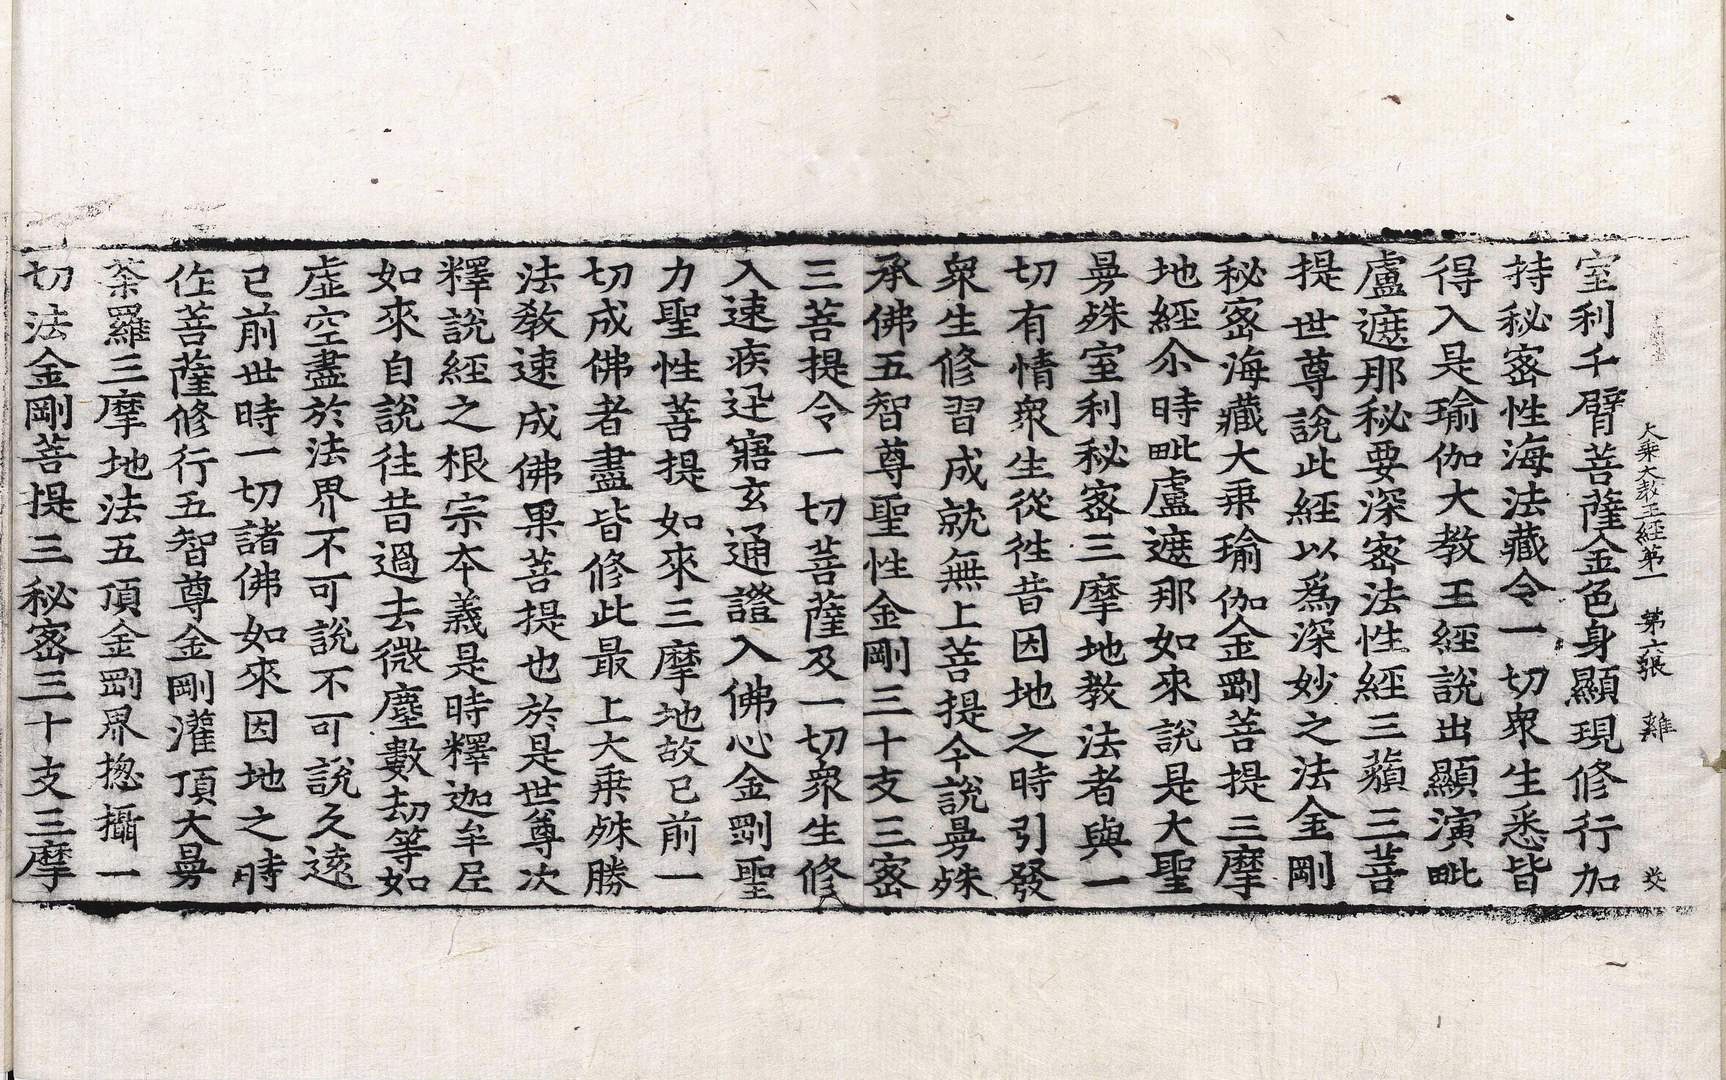 大乗大教王經第一 第六張 雞
室利千臂菩薩金色身顯現修行加
持秘宻性海法藏令一切衆生悉皆
得入是瑜伽大教王經說出顯演毗
盧遮那秘要深宻法性經三藐三菩
提世尊說此經以爲深妙之法金剛
秘宻海藏大乗瑜伽金剛菩提三摩
地經尒時毗盧遮那如來說是大聖
曼殊室利秘宻三摩地教法者與一
切有情衆生從徃昔因地之時引發
衆生修習成就無上菩提今說曼殊
承佛五智尊聖性金剛三十支三宻
三菩提令一切菩薩及一切衆生修
入速疾迅寤玄通證入佛心金剛聖
力聖性菩提如來三摩地故已前一
切成佛者盡皆修此最上大乗殊勝
法教速成佛果菩提也於是世尊次
釋說經之根宗本義是時釋迦牟尼
如來自說往昔過去微塵數劫等如
虛空盡於法界不可說不可說久遠
已前世時一切諸佛如來因地之時
作菩薩修行五智尊金剛灌頂大曼
茶羅三摩地法五頂金剛界揔攝一
切法金剛菩提三秘宻三十支三摩